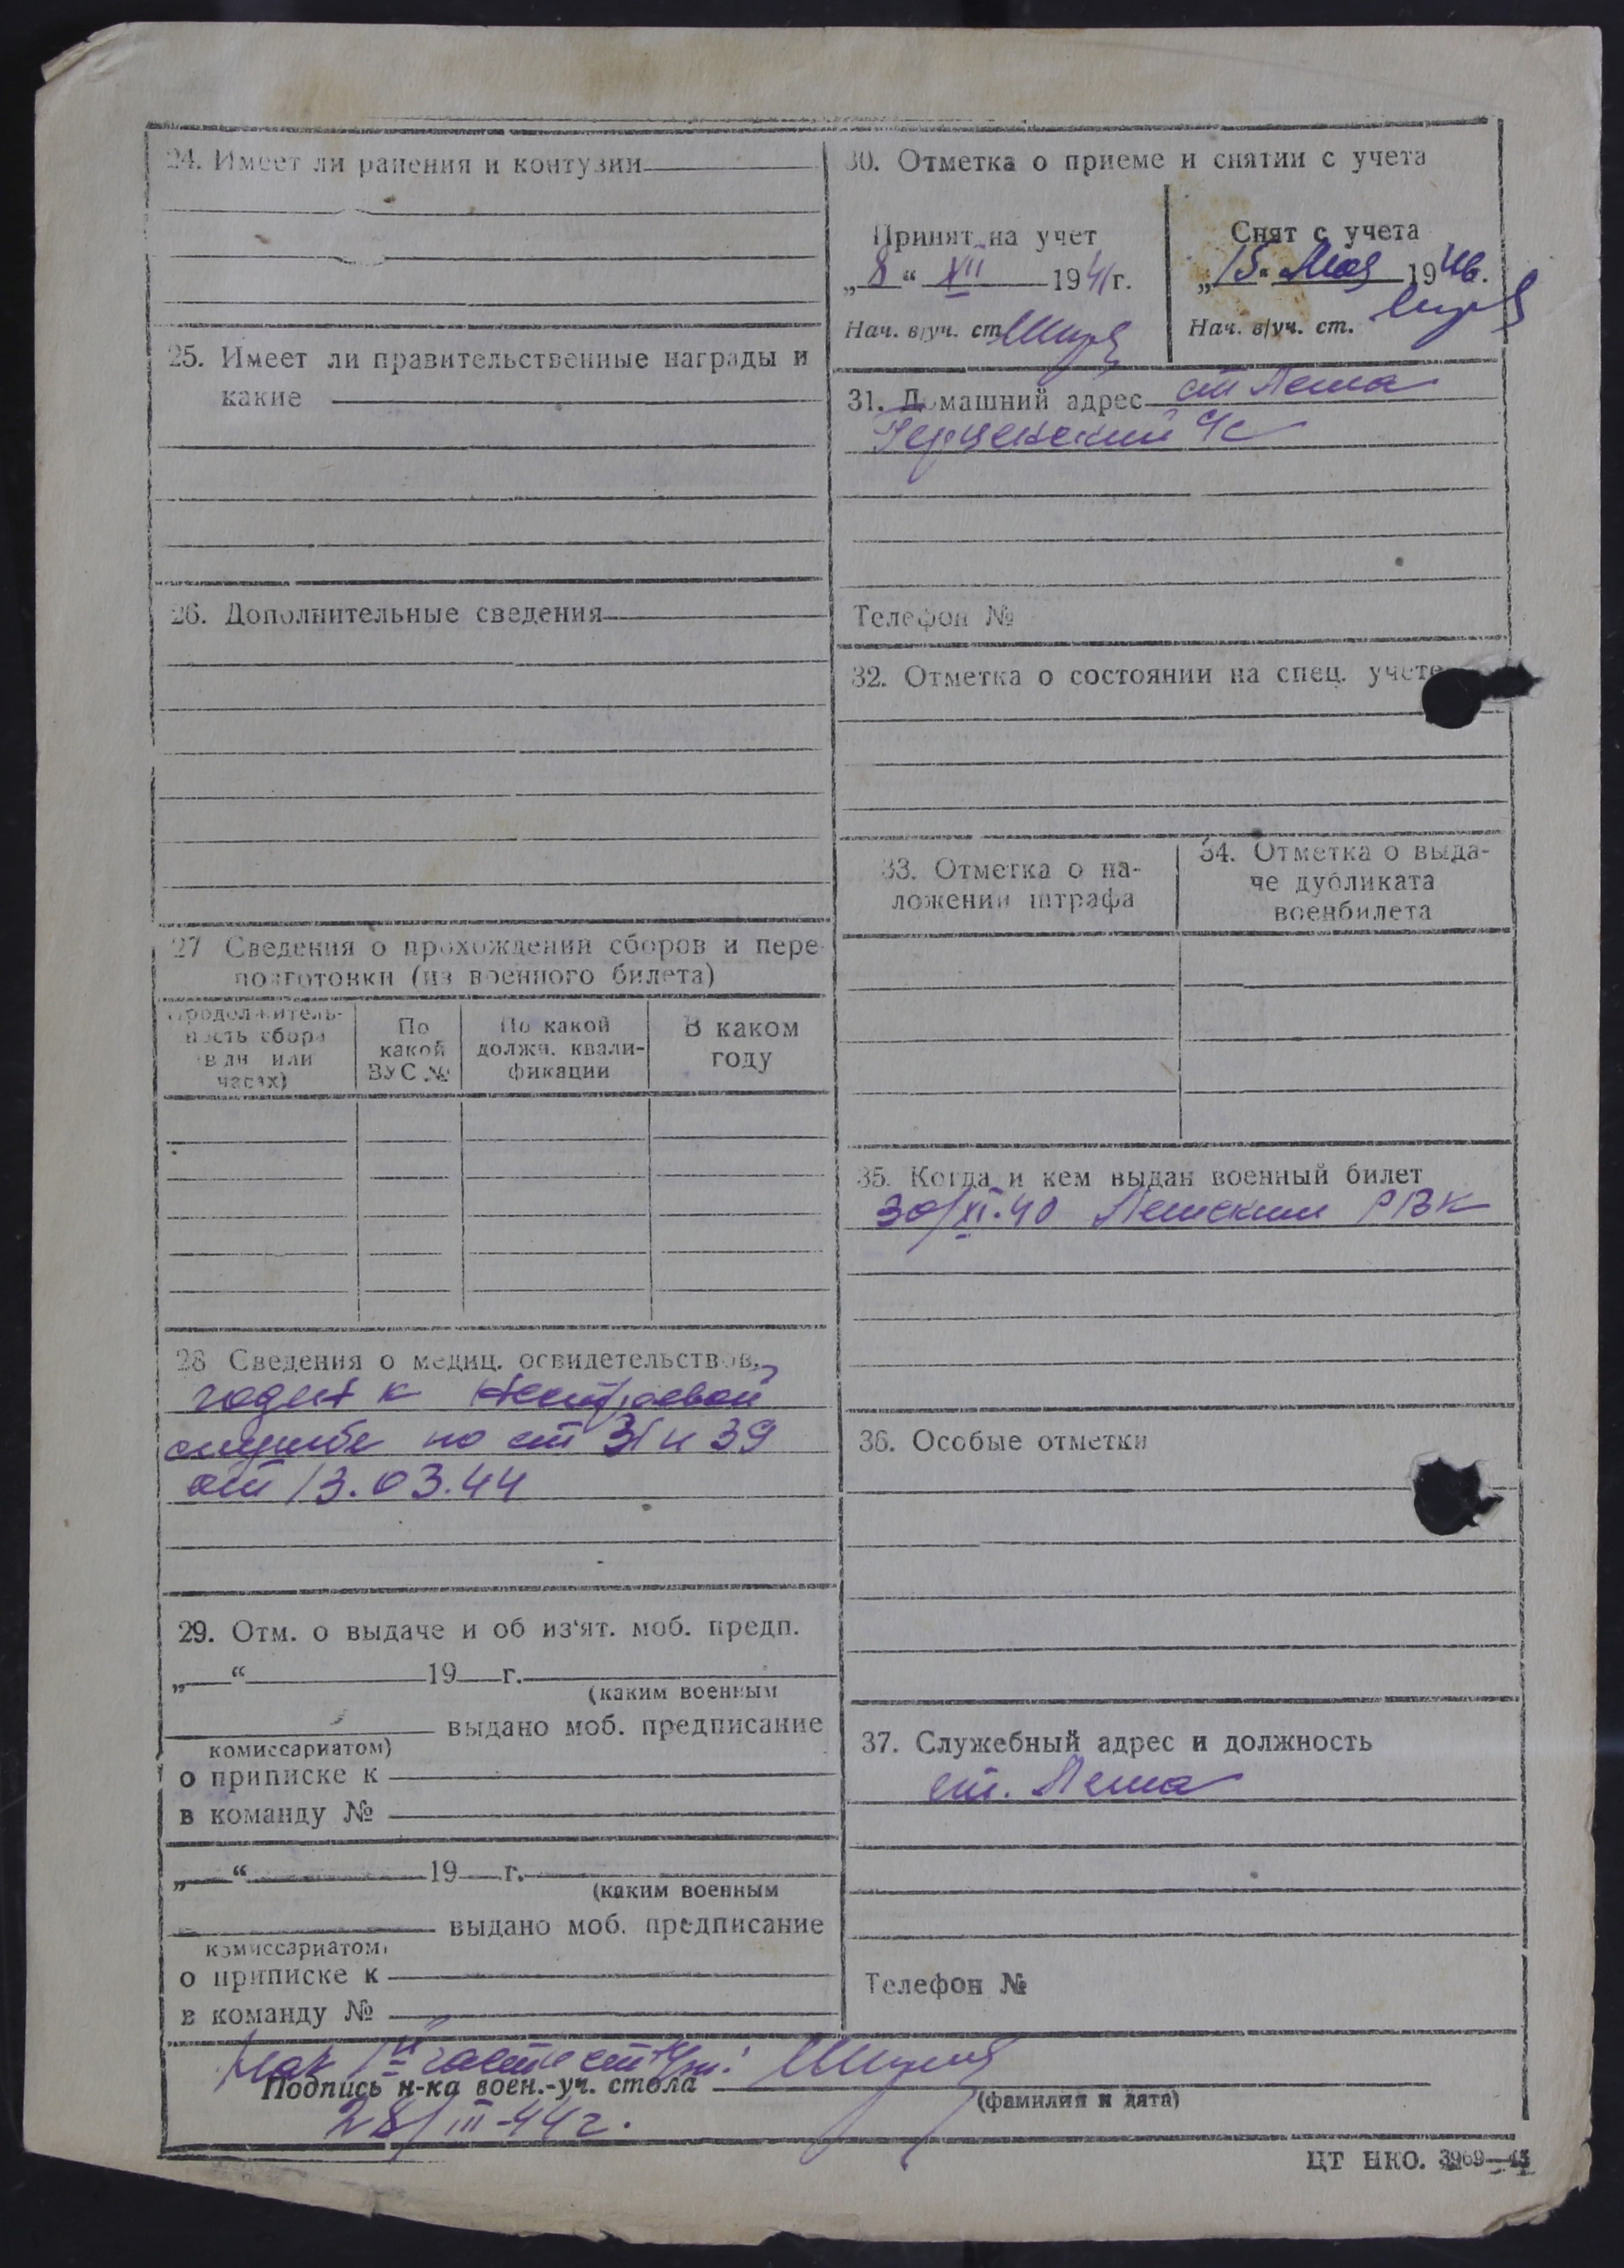 24. Имеет ли ранения и контузии
25. Имеет ли правительственные награды и
какие
26. Дополнительные сведения
27 Сведения о прохождении сборов и пере-
подготовки (из военного билета)
Продолжитель-
ность сбора
(в дн или
часах)
По
какой
ВУС №
По какой
должн. квали-
фикации
В каком
году
28 Сведения о медиц. освидетельствов.
годен к нестроевой
службе по ст 31 и 39
от 13.03.44
29. Отм. о выдаче и об из'ят. моб. предп.
„ “ 19 г.
(каким военным
выдано моб. предписание
комиссариатом)
о приписке к
в команду №
„ “ 19 г.
(каким военным
выдано моб. предписание
комиссариатом)
о приписке к
в команду №
30. Отметка о приеме и снятии с учета
Принят на учет
„8“ XII 1941г.
Нач. в/уч. ст.
Снят с учета
„15“ Мая 1946.
Нач. в/уч. ст.
31. Домашний адрес ст Леша
Герценский с/с
Телефон №
32. Отметка о состоянии на спец. учете
33. Отметка о на-
ложении штрафа
34. Отметка о выда-
че дубликата
военбилета
35. Когда и кем выдан военный билет
30/XI-40 Лешский РВК
36. Особые отметки
37. Служебный адрес и должность
ст. Леша
Телефон №
Нач части
Подпись н-ка воен.-уч. стола
(фамилия и дата)
28/III-44г.
ЦТ НКО. 3969—43